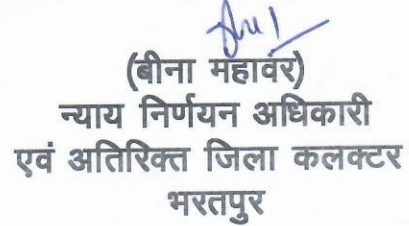 (बीना महावर)
न्याय निर्णयन अधिकारी
एवं अतिरिक्त जिला कलक्टर
भरतपुर